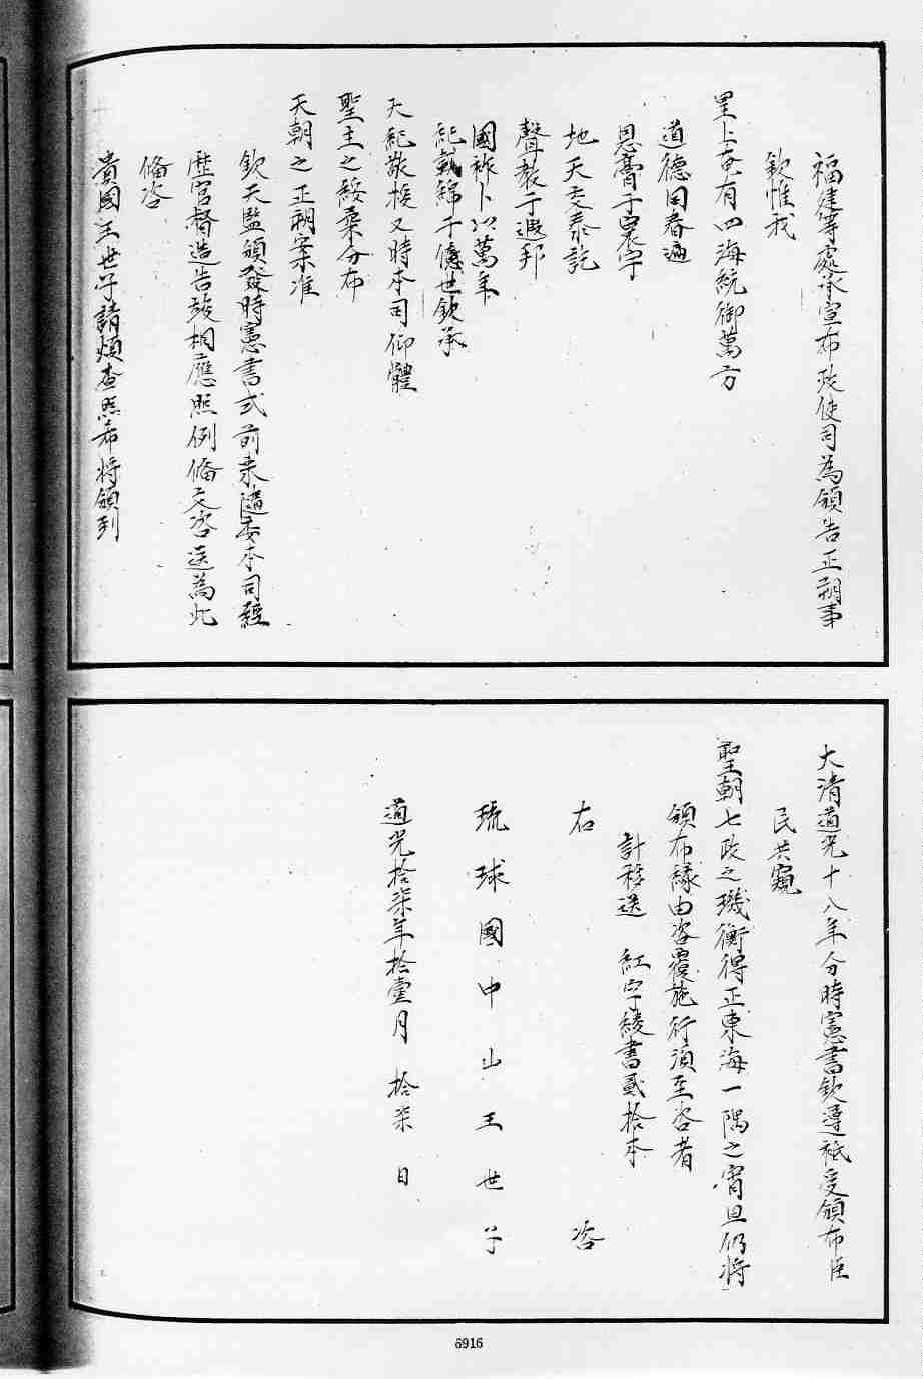 福建等處承宣布政使司為頒告正朔事
欽惟我
皇上奄有四海統御萬方
道德同春遍
恩膏于裏宇
地天交泰訖
聲教于遐邦
國祚卜以萬年
紀載綿千億世欽承
天紀敬授人時本司仰體
聖主之綏柔分布
天朝之正朔案准
欽天監頒發時憲書式前來隨委本司經
歷官督造告竣相應照例備文咨送為此
備咨
貴國王世子請煩查照希將頒到
大清道光十八年分時憲書欽遵祗受頒布臣
民共窺
聖朝七政之璣衡得正東海一隅之宵旦仍將
頒布緣由咨覆施行須至咨者
計移送 紅字綾書貳拾本
右 咨
琉球國中山王世子
道光拾柒年拾壹月 拾柒 日
6916